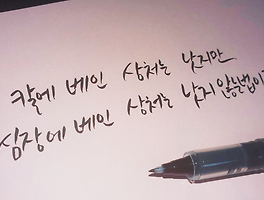 칼에 베인 상처는 낫지만
심장에 베인 상처는 낫지 않는법이